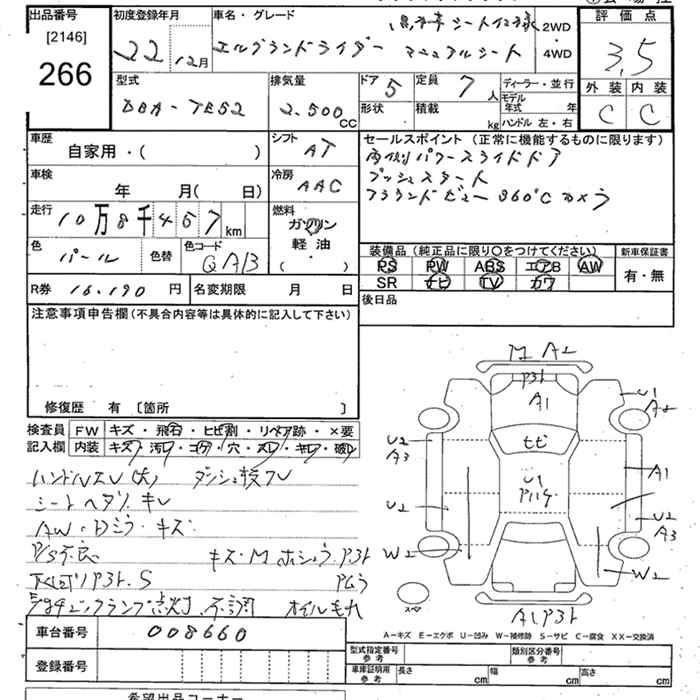 出品番号
[2146]
266
初度登録年月
22 12月
車名・グレード
エルグランドライダー
黒本革シート仕様
マニュアルシート
2WD
・
4WD
評価点
3.5
型式
DBA-TE52
排気量
2.500cc
ドア 5
形状
定員 7人
積載 kg
ディーラー・並行
モデル年式 年
ハンドル 左・右
外装 内装
C C
車歴
自家用・( )
シフト
AT
車検
年 月( 日)
冷房
AAC
走行
10万8千457km
燃料
ガソリン
軽油
( ・ )
色
パール
色替
色コード
QAB
R券 16.190円
名変期限 月 日
セールスポイント (正常に機能するものに限ります)
両側パワースライドドア
プッシュスタート
アラウンドビュー 360°Cカメラ
装備品(純正品に限り○をつけてください)
新車保証書
PS PW ABS エアB AW
有・無
SR ナビ TV カワ
後日品
注意事項申告欄(不具合内容等は具体的に記入して下さい)
修復歴 有 [箇所 ]
検査員記入欄
FW キズ・飛石・ヒビ割・リペア跡・×要
内装 キズ・汚れ・コゲ・穴・スレ・キレ・破れ
シートヘタリ・キレ
AW・Dミラ・キズ
P/S不良
キズ・M ホシュウ P3ト
下廻り P3ト.S
エンジンチェックランプ点灯.不調 オイルモレ
M A2
P3ト
A1
U1
A2
ヒビ
U2
A3
A1
U1
U2
U2
A3
W2
W2
スペア
A1P3ト
A-キズ E-エクボ U-凹み W-補修跡 S-サビ C-腐食 XX-交換済
車台番号 008660
登録番号
型式指定番号 参考
類別区分番号 参考
車庫証明用 参考
長さ cm
幅 cm
高さ cm
希望出品コーナー